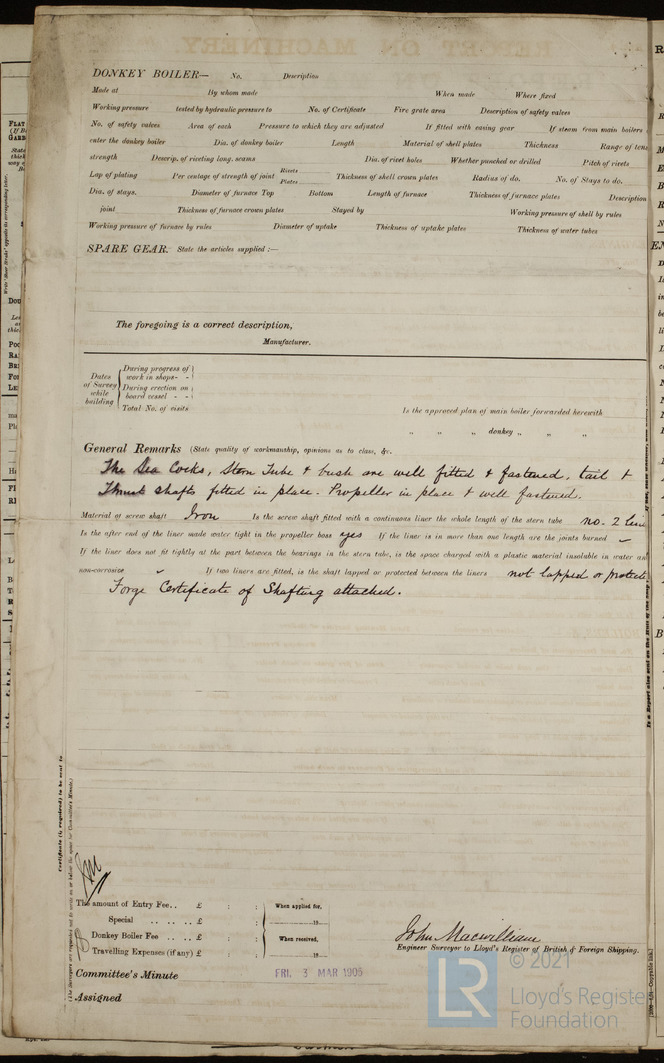 DONKEY BOILER— No. Description
Made at By whom made When made Where fixed
Working pressure tested by hydraulic pressure to No. of Certificate Fire grate area Description of safety valves
No. of safety valves Area of each Pressure to which they are adjusted If fitted with easing gear If steam from main boilers
enter the donkey boiler Dia. of donkey boiler Length Material of shell plates Thickness Range of tens
strength Descrip. of riveting long. seams Dia. of rivet holes Whether punched or drilled Pitch of rivets
Lap of plating Per centage of strength of joint Rivets Plates Thickness of shell crown plates Radius of do. No. of Stays to do.
Dia. of stays. Diameter of furnace Top Bottom Length of furnace Thickness of furnace plates Description
joint Thickness of furnace crown plates Stayed by Working pressure of shell by rules
Working pressure of furnace by rules Diameter of uptake Thickness of uptake plates Thickness of water tubes
SPARE GEAR. State the articles supplied :—
The foregoing is a correct description,
Manufacturer.
Dates of Survey while building
During progress of work in shops - -
During erection on board vessel - -
Total No. of visits
Is the approved plan of main boiler forwarded herewith
" " " donkey " " "
General Remarks (State quality of workmanship, opinions as to class, &c.
The Sea Cocks, Stern Tube & bush are well fitted & fastened. tail &
Thrust shafts fitted in place. Propeller in place & well fastened.
Material of screw shaft Iron Is the screw shaft fitted with a continuous liner the whole length of the stern tube no. 2 line
Is the after end of the liner made water tight in the propeller boss yes If the liner is in more than one length are the joints burned —
If the liner does not fit tightly at the part between the bearings in the stern tube, is the space charged with a plastic material insoluble in water an
non-corrosive If two liners are fitted, is the shaft lapped or protected between the liners not lapped or protecte
Forge Certificate of Shafting attached.
Certificate (if required) to be sent to
(The Surveyors are requested not to write on or below the space for Committee's Minute.)
The amount of Entry Fee.. £ : : When applied for,
Special .. .. .. £ : : 19
Donkey Boiler Fee .. .. £ : : When received,
Travelling Expenses (if any) £ : : 19
John Macwilliam
Engineer Surveyor to Lloyd's Register of British & Foreign Shipping.
Committee's Minute FRI. 3 MAR 1905
Assigned
LR © 2021
Lloyd's Registe
Foundation